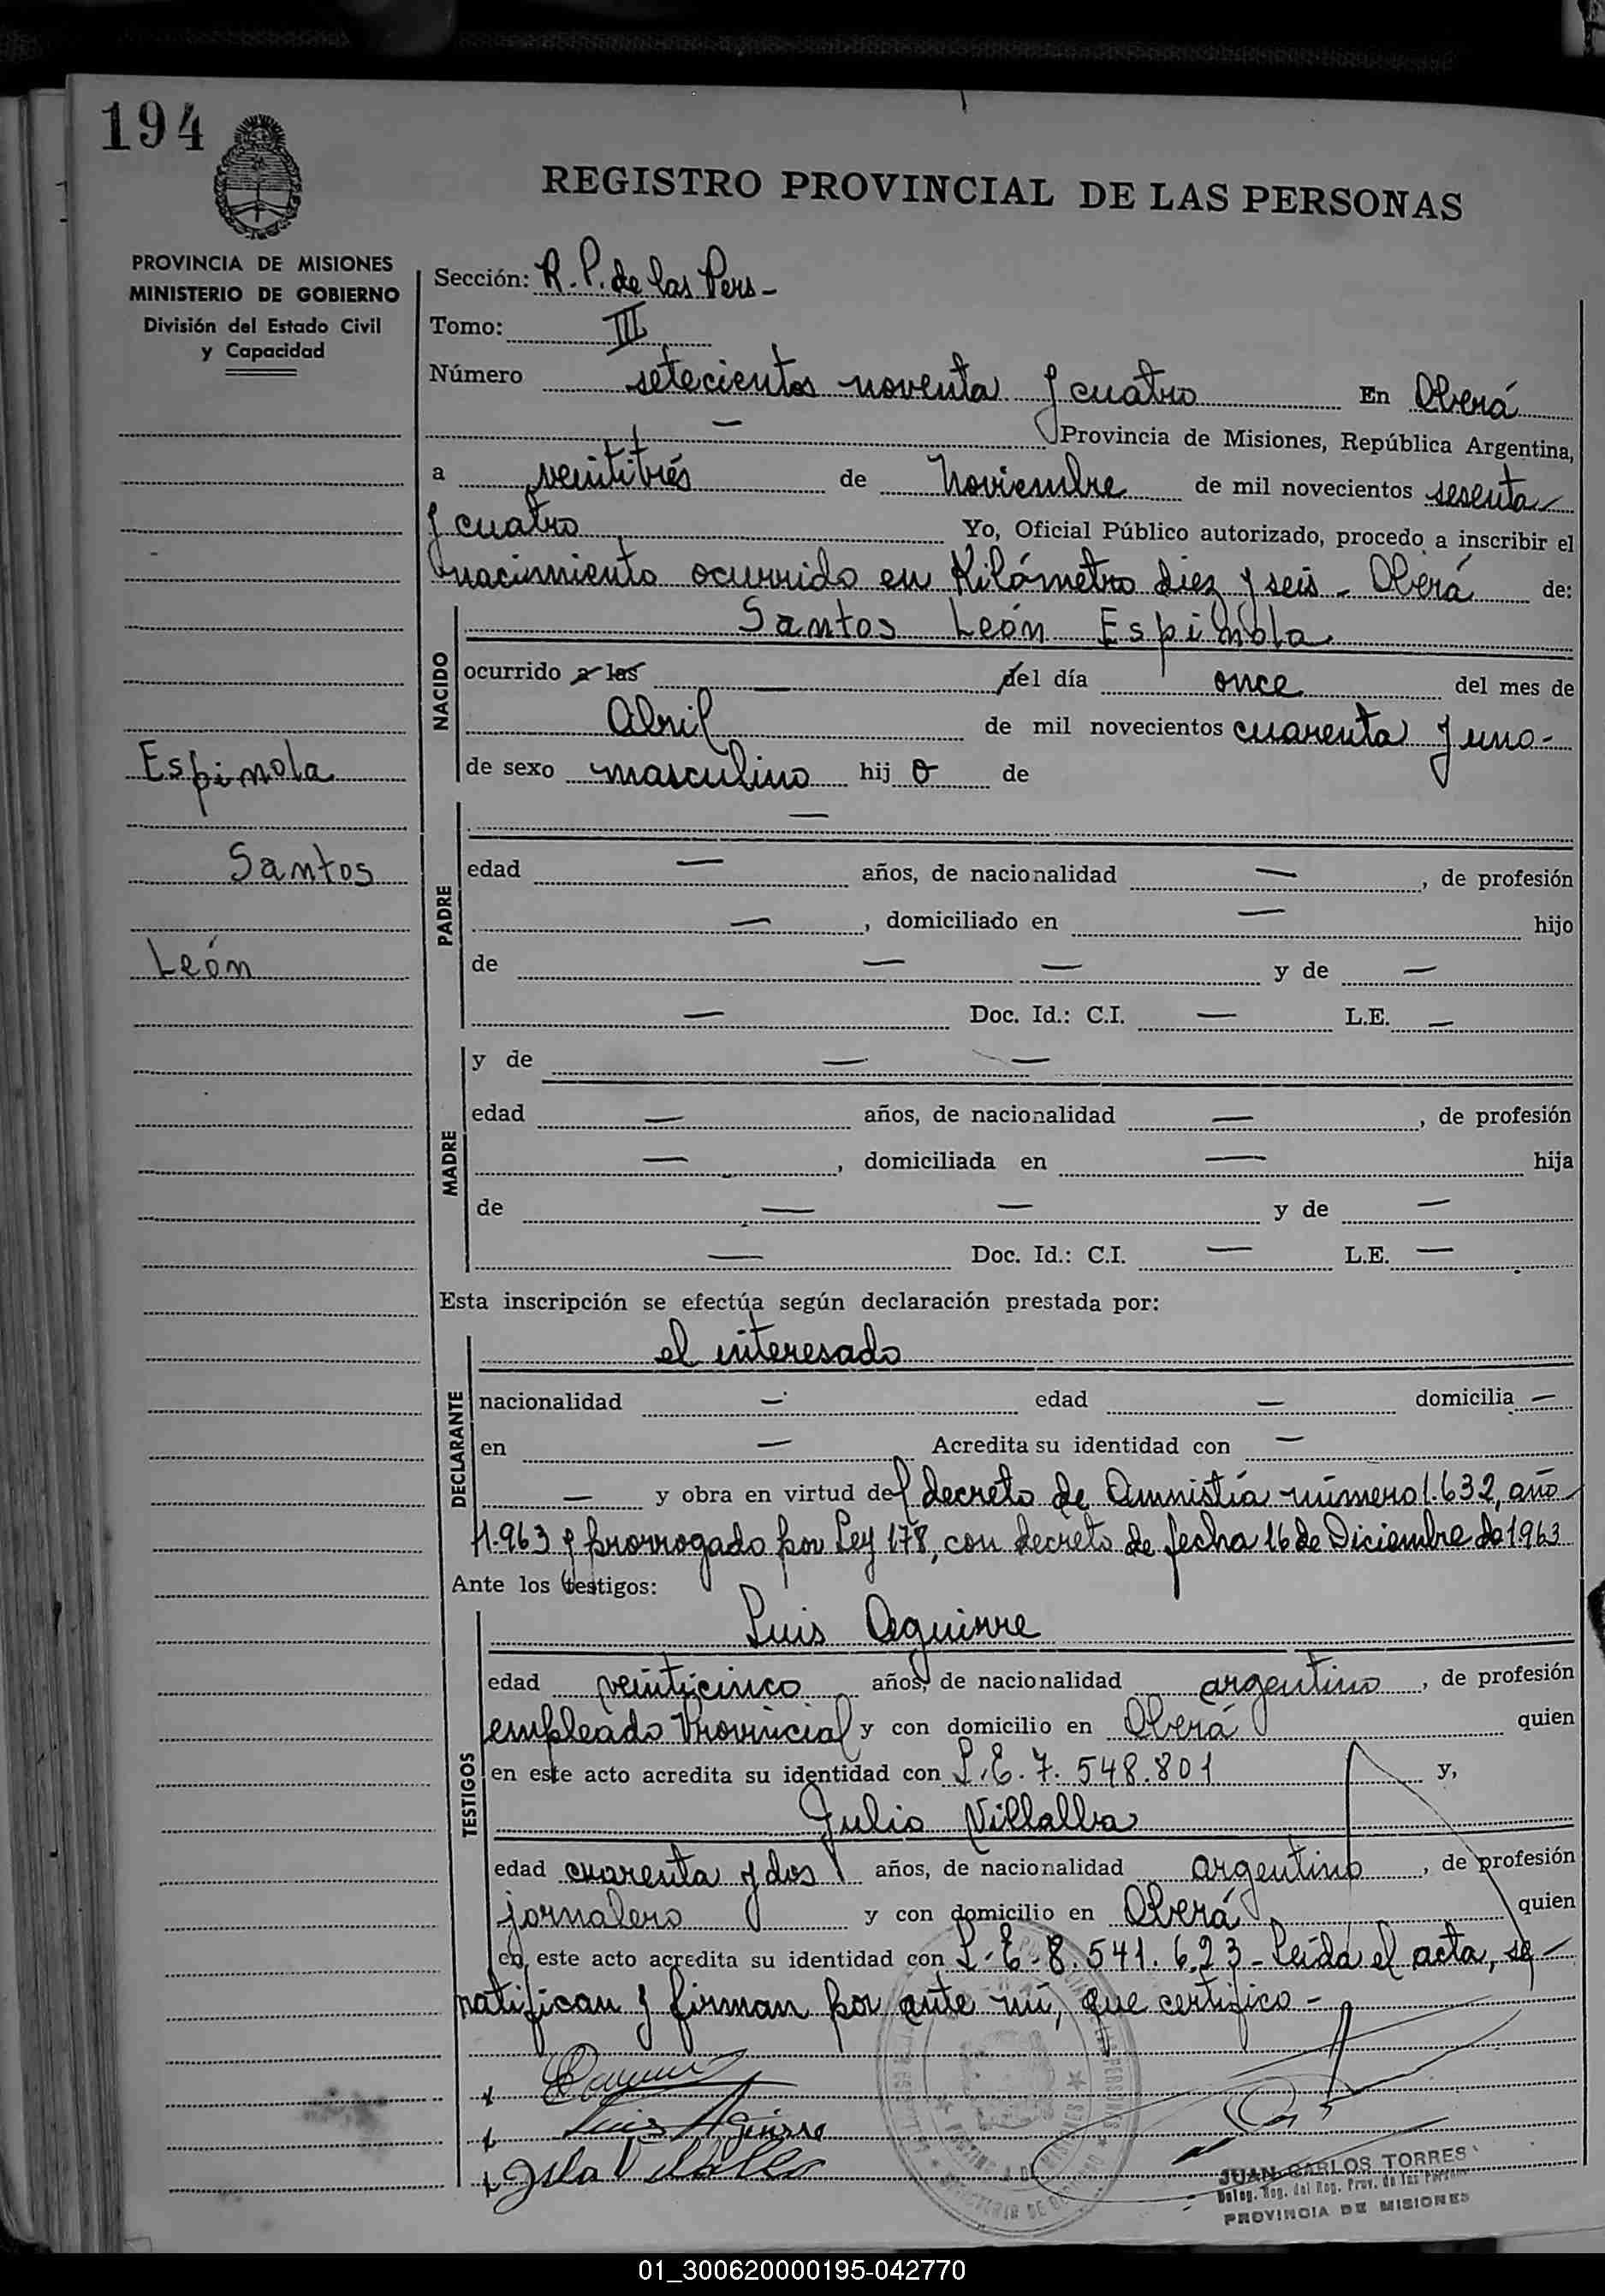 194
REGISTRO PROVINCIAL DE LAS PERSONAS
PROVINCIA DE MISIONES
MINISTERIO DE GOBIERNO
División del Estado Civil
y Capacidad
Sección: R. P. de las Pers -
Tomo: III
Número setecientos noventa y cuatro En Oberá
— Provincia de Misiones, República Argentina,
a veintitrés de Noviembre de mil novecientos sesenta
y cuatro Yo, Oficial Público autorizado, procedo a inscribir el
nacimiento ocurrido en Kilómetro diez y seis - Oberá de:
NACIDO
Santos León Espinola
ocurrido a las — del día once del mes de
Abril de mil novecientos cuarenta y uno -
de sexo masculino hij o de
Espinola
Santos
León
PADRE
—
edad — años, de nacionalidad — , de profesión
— , domiciliado en — hijo
de — — y de —
— Doc. Id.: C.I. — L.E. —
MADRE
y de — —
edad — años, de nacionalidad — , de profesión
— , domiciliada en — hija
de — — y de —
— Doc. Id.: C.I. — L.E. —
Esta inscripción se efectúa según declaración prestada por:
DECLARANTE
el interesado
nacionalidad — edad — domicilia —
en — Acredita su identidad con —
— y obra en virtud del decreto de Amnistía número 1.632, año
1.963 y prorrogado por Ley 178, con decreto de fecha 16 de Diciembre de 1963
Ante los testigos:
TESTIGOS
Luis Aguirre
edad veinticinco años, de nacionalidad argentino , de profesión
empleado Provincial y con domicilio en Oberá quien
en este acto acredita su identidad con L. E. 7. 548.801 y,
Julio Villalba
edad cuarenta y dos años, de nacionalidad argentino , de profesión
jornalero y con domicilio en Oberá quien
en este acto acredita su identidad con L. E. 8. 541. 623 - Leída el acta, se -
ratifican y firman por ante mí, que certifico -
Luis Aguirre
JUAN CARLOS TORRES
Deleg. Reg. del Reg. Prov. de las Personas
PROVINCIA DE MISIONES
01_300620000195-042770